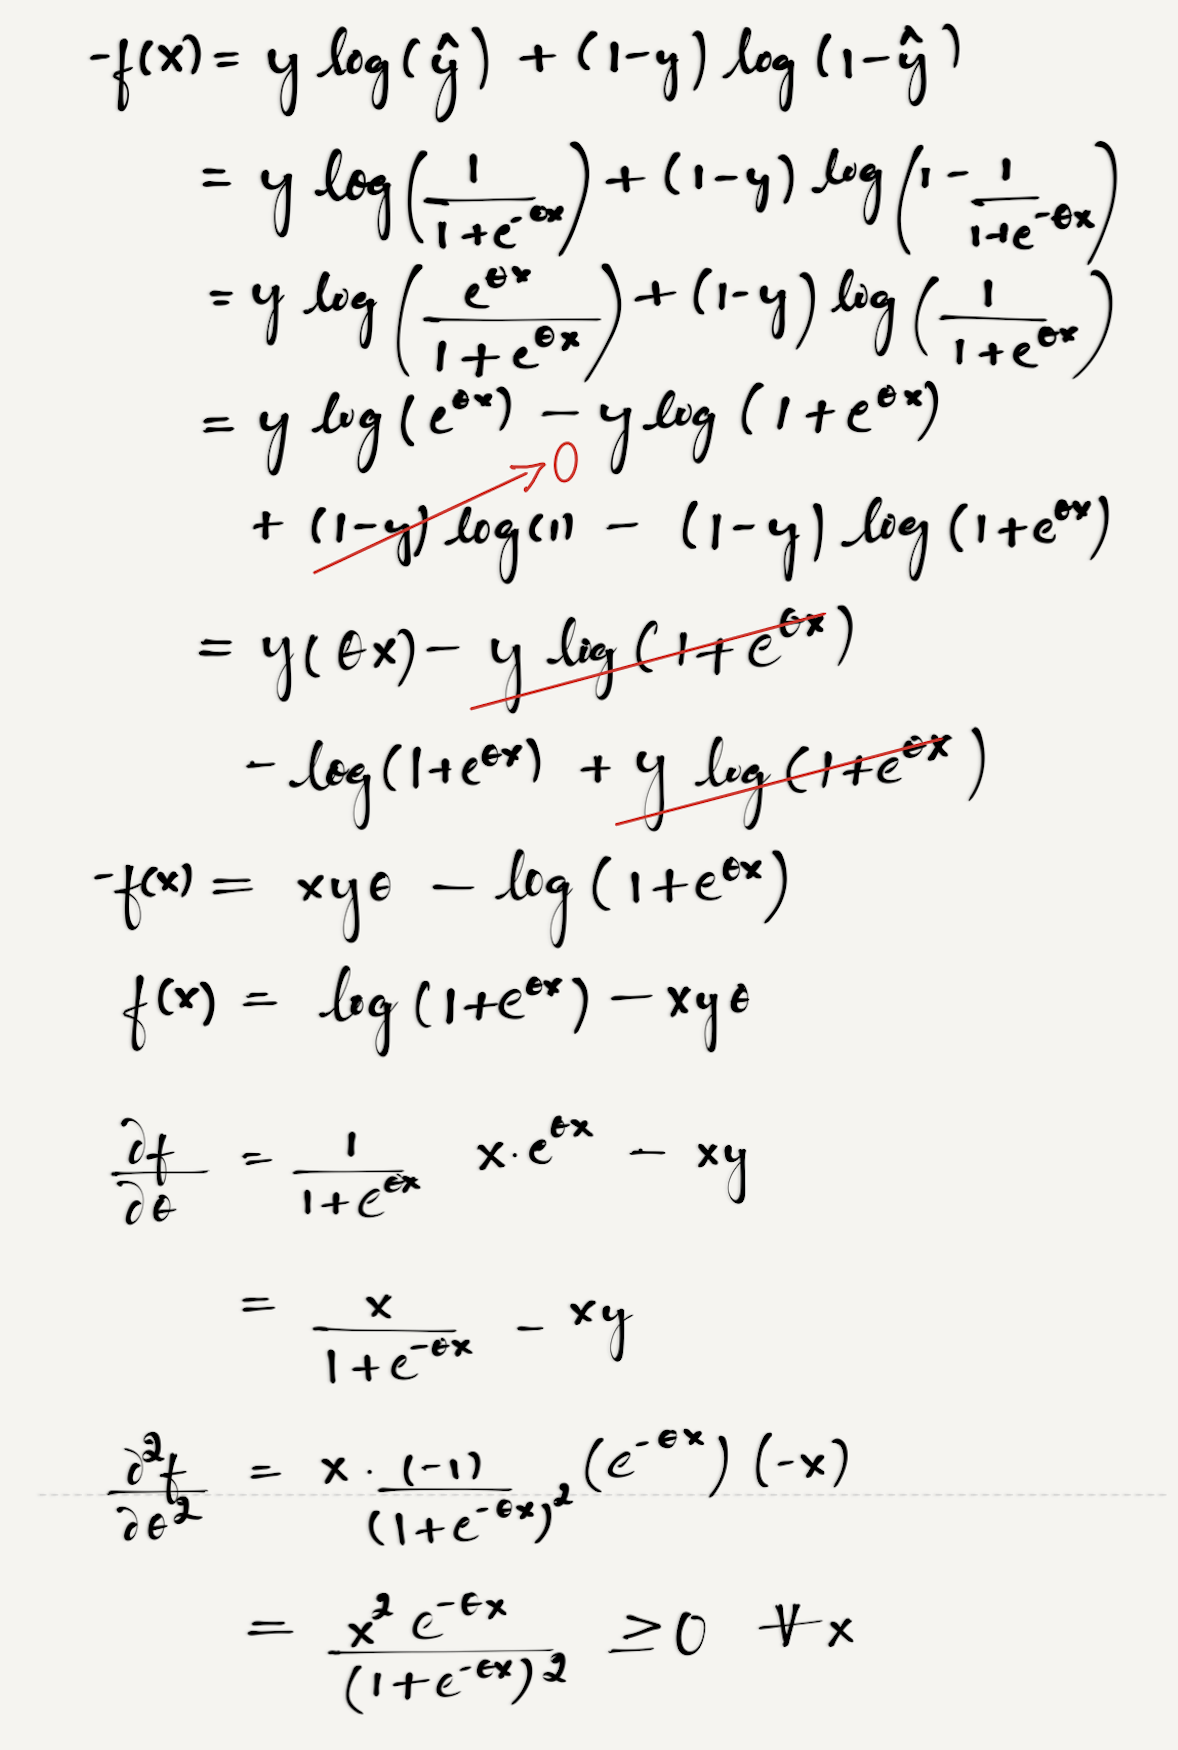 -f(x) = y log(ŷ) + (1-y) log(1-ŷ)
= y log(1/(1+e^{-θx})) + (1-y) log(1 - 1/(1+e^{-θx}))
= y log(e^{θx}/(1+e^{θx})) + (1-y) log(1/(1+e^{θx}))
= y log(e^{θx}) - y log(1+e^{θx})
0
+ (1-y) log(1) - (1-y) log(1+e^{θx})
= y(θx) - y log(1+e^{θx})
- log(1+e^{θx}) + y log(1+e^{θx})
-f(x) = xyθ - log(1+e^{θx})
f(x) = log(1+e^{θx}) - xyθ
∂f/∂θ = 1/(1+e^{θx}) x·e^{θx} - xy
= x/(1+e^{-θx}) - xy
∂²f/∂θ² = x · (-1)/(1+e^{-θx})² (e^{-θx}) (-x)
= x² e^{-θx}/(1+e^{-θx})² ≥ 0 ∀x